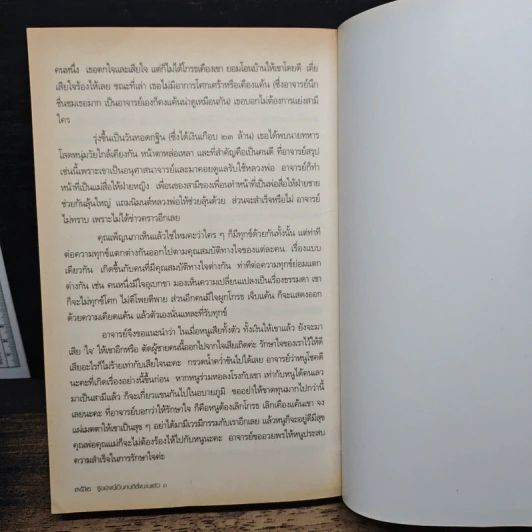 คนหนึ่ง เธอตกใจและเสียใจ แต่ก็ไม่ได้โกรธเคืองเขา ยอมโอนบ้านให้เขาโดยดี
เสียใจร้องไห้เลย ขณะที่เล่า เธอไม่มีอาการโศกเศร้าหรือเคืองแค้น (ซึ่งอาจารย์นึก
ชื่นชมเธอมาก เป็นอาจารย์เองก็คงแค้นน่าดูเหมือนกัน) เธอบอกไม่ต้องการแย่งสามี
ใคร
รุ่งขึ้นเป็นวันทอดกฐิน (ซึ่งได้เงินเกือบ ๒๓ ล้าน) เธอได้พบนายทหาร
โสดหนุ่มวัยใกล้เคียงกัน หน้าตาหล่อเหลา และที่สำคัญคือเป็นคนดี ที่อาจารย์สรุป
เช่นนี้เพราะเขาเป็นอนุศาสนาจารย์และมาคอยดูแลรับใช้หลวงพ่อ อาจารย์ก็ทำ
หน้าที่เป็นแม่สื่อให้ฝ่ายหญิง เพื่อนของสามีของเพื่อนทำหน้าที่เป็นพ่อสื่อให้ฝ่ายชาย
ช่วยกันลุ้นใหญ่ แถมนิมนต์หลวงพ่อให้ช่วยลุ้นด้วย ส่วนจะสำเร็จหรือไม่ อาจารย์
ไม่ทราบ เพราะไม่ได้ข่าวคราวอีกเลย
คุณเพ็ญนภาเห็นแล้วใช่ไหมคะว่าใคร ๆ ก็มีทุกข์ด้วยกันทั้งนั้น แต่ท่าที
ต่อความทุกข์แตกต่างกันออกไปตามคุณสมบัติทางใจของแต่ละคน เรื่องแบบ
เดียวกัน เกิดขึ้นกับคนที่มีคุณสมบัติทางใจต่างกัน ท่าทีต่อความทุกข์ย่อมแตก
ต่างกัน เช่น คนหนึ่งมีใจอุเบกขา มองเห็นความเปลี่ยนแปลงเป็นเรื่องธรรมดา เขา
ก็จะไม่ทุกข์โศก ไม่ตีโพยตีพาย ส่วนอีกคนมีใจผูกโกรธ เจ็บแค้น ก็จะแสดงออก
ด้วยความเคียดแค้น แล้วตัวเองนั่นแหละที่รับทุกข์
อาจารย์จึงขอแนะนำว่า ในเมื่อหนูเสียทั้งตัว ทั้งเงินให้เขาแล้ว ยังจะมา
เสีย 'ใจ' ให้เขาอีกหรือ ตัดผู้ชายคนนี้ออกไปจากใจเสียเถิดค่ะ รักษาใจของเราไว้ให้ดี
เสียอะไรก็ไม่ร้ายเท่ากับเสียใจนะคะ กรวดน้ำคว่ำขันไปได้เลย อาจารย์ว่าหนูโชคดี
นะคะที่เกิดเรื่องอย่างนี้ขึ้นก่อน หากหนูร่วมหอลงโรงกับเขา เท่ากับหนูได้คนเลว
มาเป็นสามีแล้ว ก็จะเกี่ยวแขนกันไปในอบายภูมิ ขออย่าให้ขาดทุนมากไปกว่านี้
เลยนะคะ ที่อาจารย์บอกว่าให้รักษาใจ ก็คือหนูต้องเลิกโกรธ เลิกเคืองแค้นเขา จง
แผ่เมตตาให้เขาเป็นสุข ๆ อย่าได้มามีเวรมีกรรมกับเราอีกเลย แล้วหนูก็จะอยู่ดีมีสุข
คุณพ่อคุณแม่ก็จะไม่ต้องร้องไห้ไปกับหนูนะคะ อาจารย์ขออวยพรให้หนูประสบ
ความสำเร็จในการรักษาใจค่ะ